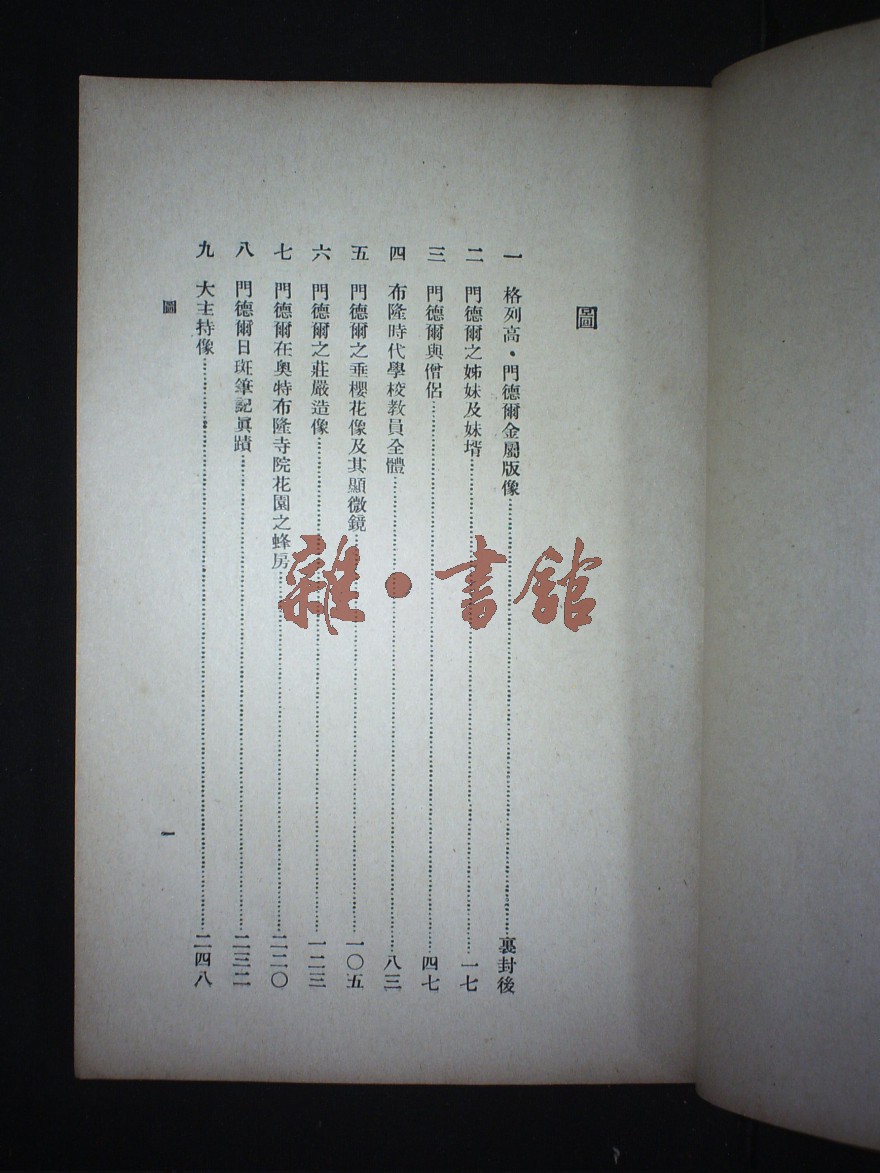 圖
一 格列高·門德爾金屬版像……裏封後
二 門德爾之姊妹及妹壻……一七
三 門德爾與僧侶……四七
四 布隆時代學校教員全體……八三
五 門德爾之垂櫻花像及其顯微鏡……一〇五
六 門德爾之莊嚴造像……一二三
七 門德爾在奧特布隆寺院花園之蜂房……二二〇
八 門德爾日斑筆記眞蹟……二三二
九 大主持像……二四八
圖 一
雜·書館